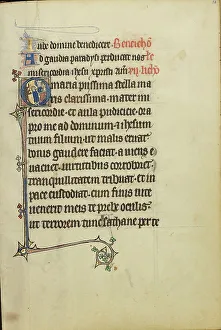 Iube domine benedicere. Benedictio
Ad gaudia paradysi perducat nos
misericordia ihesu xpristi am
maria piissima stella ma
ris clarissima mater mi
sericordie et aula pudicicie ora
pro me ad dominum et ihesum
tuum filium ut malis eruat
bonis gaudere faciat a viciis
evacuet virtutibus corroboret
tranquillitatem tribuat et in
pace custodiat cum finis vite
venerit meis te prebe oculis
ut terrorem tunc sathane per te